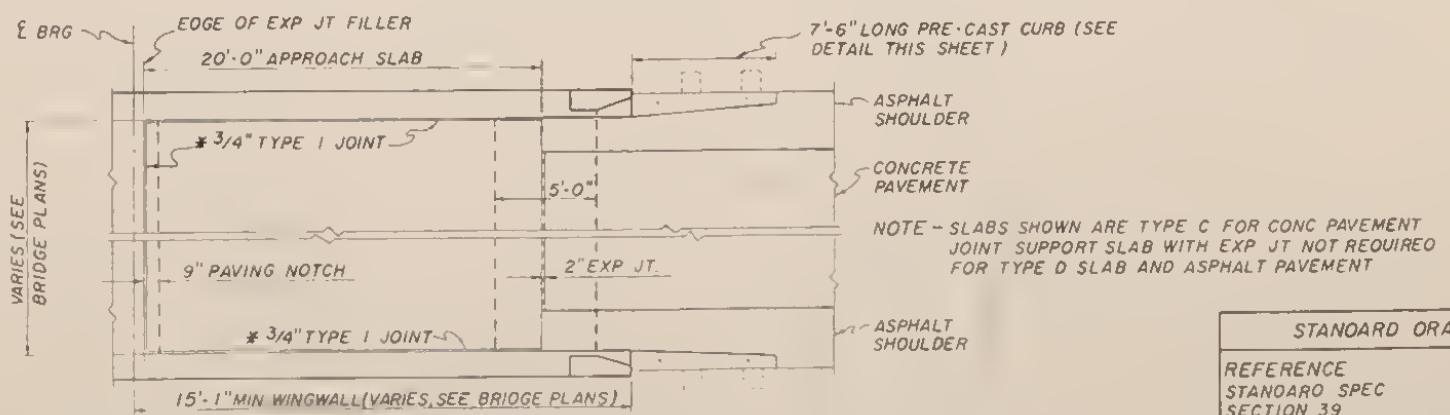 ℄ BRG
EDGE OF EXP JT FILLER
20'-0" APPROACH SLAB
7'-6" LONG PRE-CAST CURB (SEE
DETAIL THIS SHEET)
ASPHALT
SHOULDER
* 3/4" TYPE I JOINT
CONCRETE
PAVEMENT
5'-0"
VARIES (SEE
BRIDGE PLANS)
NOTE - SLABS SHOWN ARE TYPE C FOR CONC PAVEMENT
JOINT SUPPORT SLAB WITH EXP JT NOT REQUIRED
FOR TYPE D SLAB AND ASPHALT PAVEMENT
9" PAVING NOTCH
2" EXP JT.
* 3/4" TYPE I JOINT
ASPHALT
SHOULDER
15'-1" MIN WINGWALL (VARIES, SEE BRIDGE PLANS)
STANDARD DRA
REFERENCE
STANDARD SPEC
SECTION 39